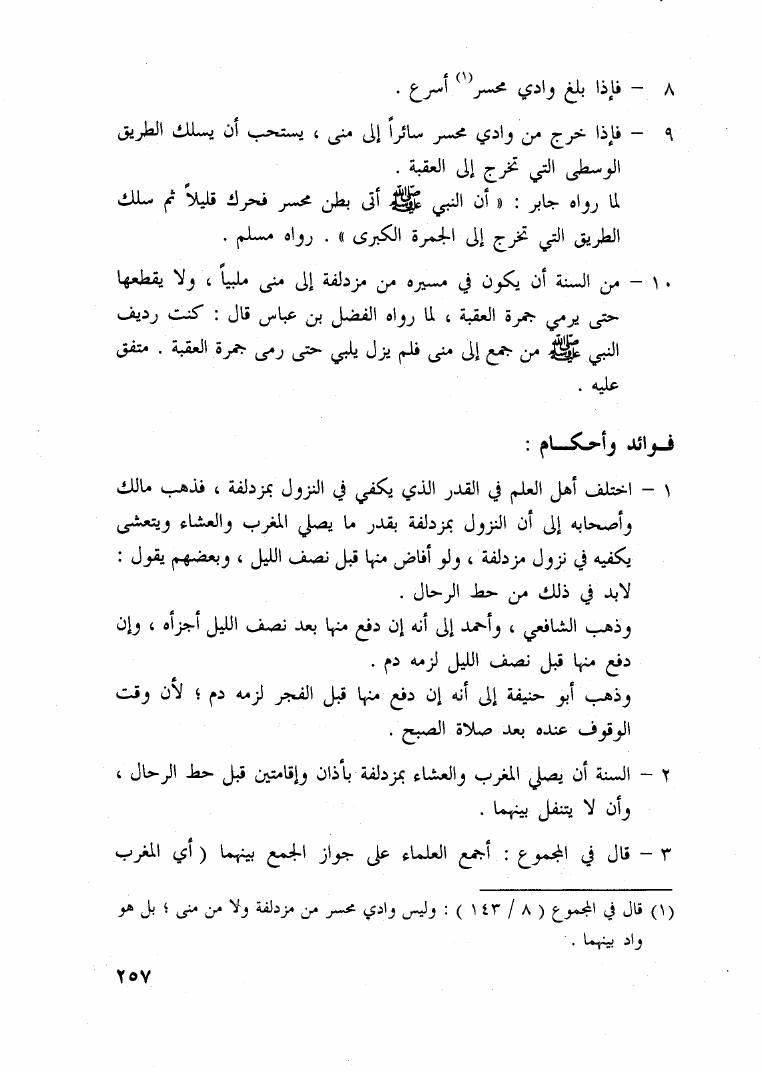 ٨ – فإذا بلغ وادي محسر(١) أسرع .
٩ – فإذا خرج من وادي محسر سائراً إلى منى ، يستحب أن يسلك الطريق
الوسطى التي تخرج إلى العقبة .
لما رواه جابر : « أن النبي ﷺ أتى بطن محسر فحرك قليلاً ثم سلك
الطريق التي تخرج إلى الجمرة الكبرى » . رواه مسلم .
١٠ – من السنة أن يكون في مسيره من مزدلفة إلى منى ملبياً ، ولا يقطعها
حتى يرمي جمرة العقبة ، لما رواه الفضل بن عباس قال : كنت رديف
النبي ﷺ من جمع إلى منى فلم يزل يلبي حتى رمى جمرة العقبة . متفق
عليه .
فـوائد وأحكـــام :
١ – اختلف أهل العلم في القدر الذي يكفي في النزول بمزدلفة ، فذهب مالك
وأصحابه إلى أن النزول بمزدلفة بقدر ما يصلي المغرب والعشاء ويتعشى
يكفيه في نزول مزدلفة ، ولو أفاض منها قبل نصف الليل ، وبعضهم يقول :
لابد في ذلك من حط الرحال .
وذهب الشافعي ، وأحمد إلى أنه إن دفع منها بعد نصف الليل أجزأه ، وإن
دفع منها قبل نصف الليل لزمه دم .
وذهب أبو حنيفة إلى أنه إن دفع منها قبل الفجر لزمه دم ؛ لأن وقت
الوقوف عنده بعد صلاة الصبح .
٢ – السنة أن يصلي المغرب والعشاء بمزدلفة بأذان وإقامتين قبل حط الرحال ،
وأن لا يتنفل بينهما .
٣ – قال في المجموع : أجمع العلماء على جواز الجمع بينهما ( أي المغرب
(١) قال في المجموع ( ٨ / ١٤٣ ) : وليس وادي محسر من مزدلفة ولا من منى ؛ بل هو
واد بينهما .
٢٥٧